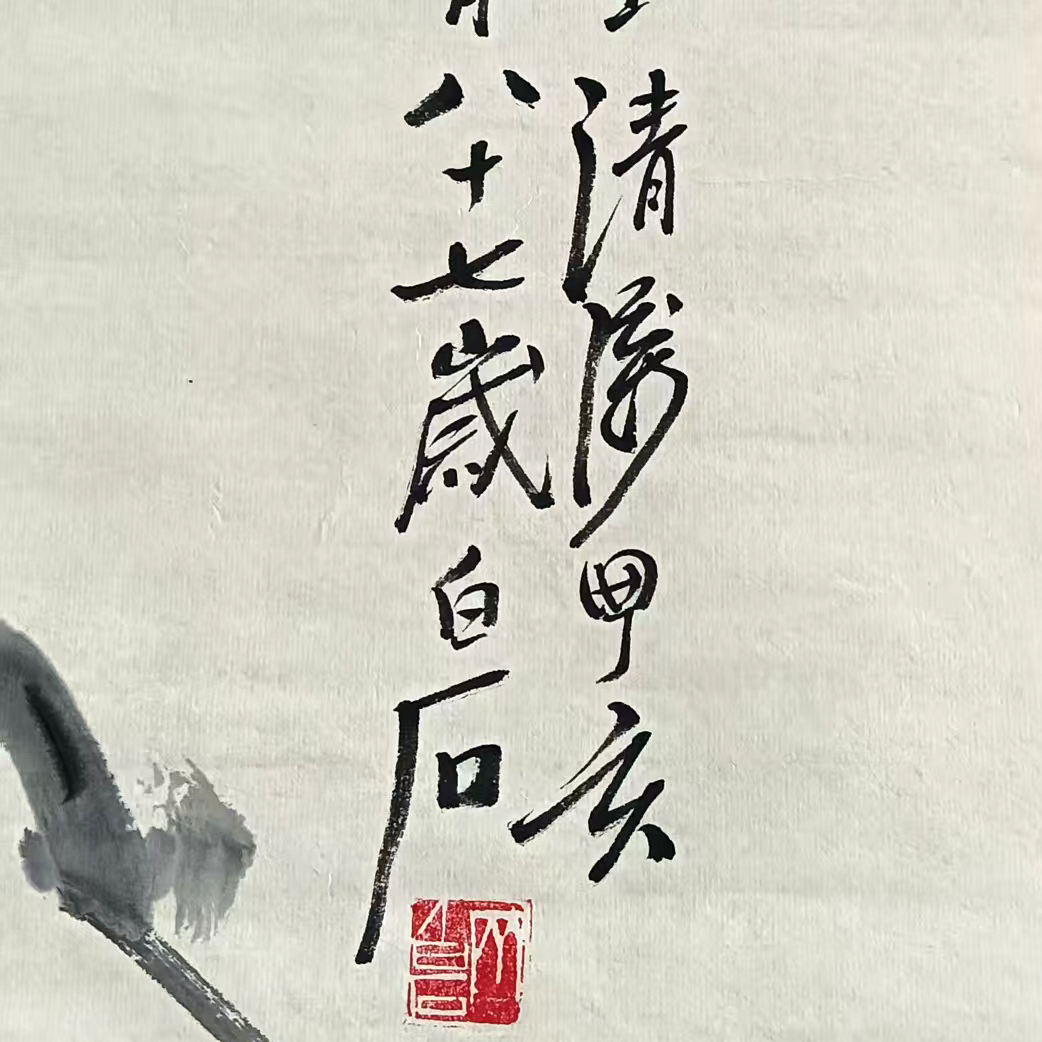 清甲亥
八十七歲白石